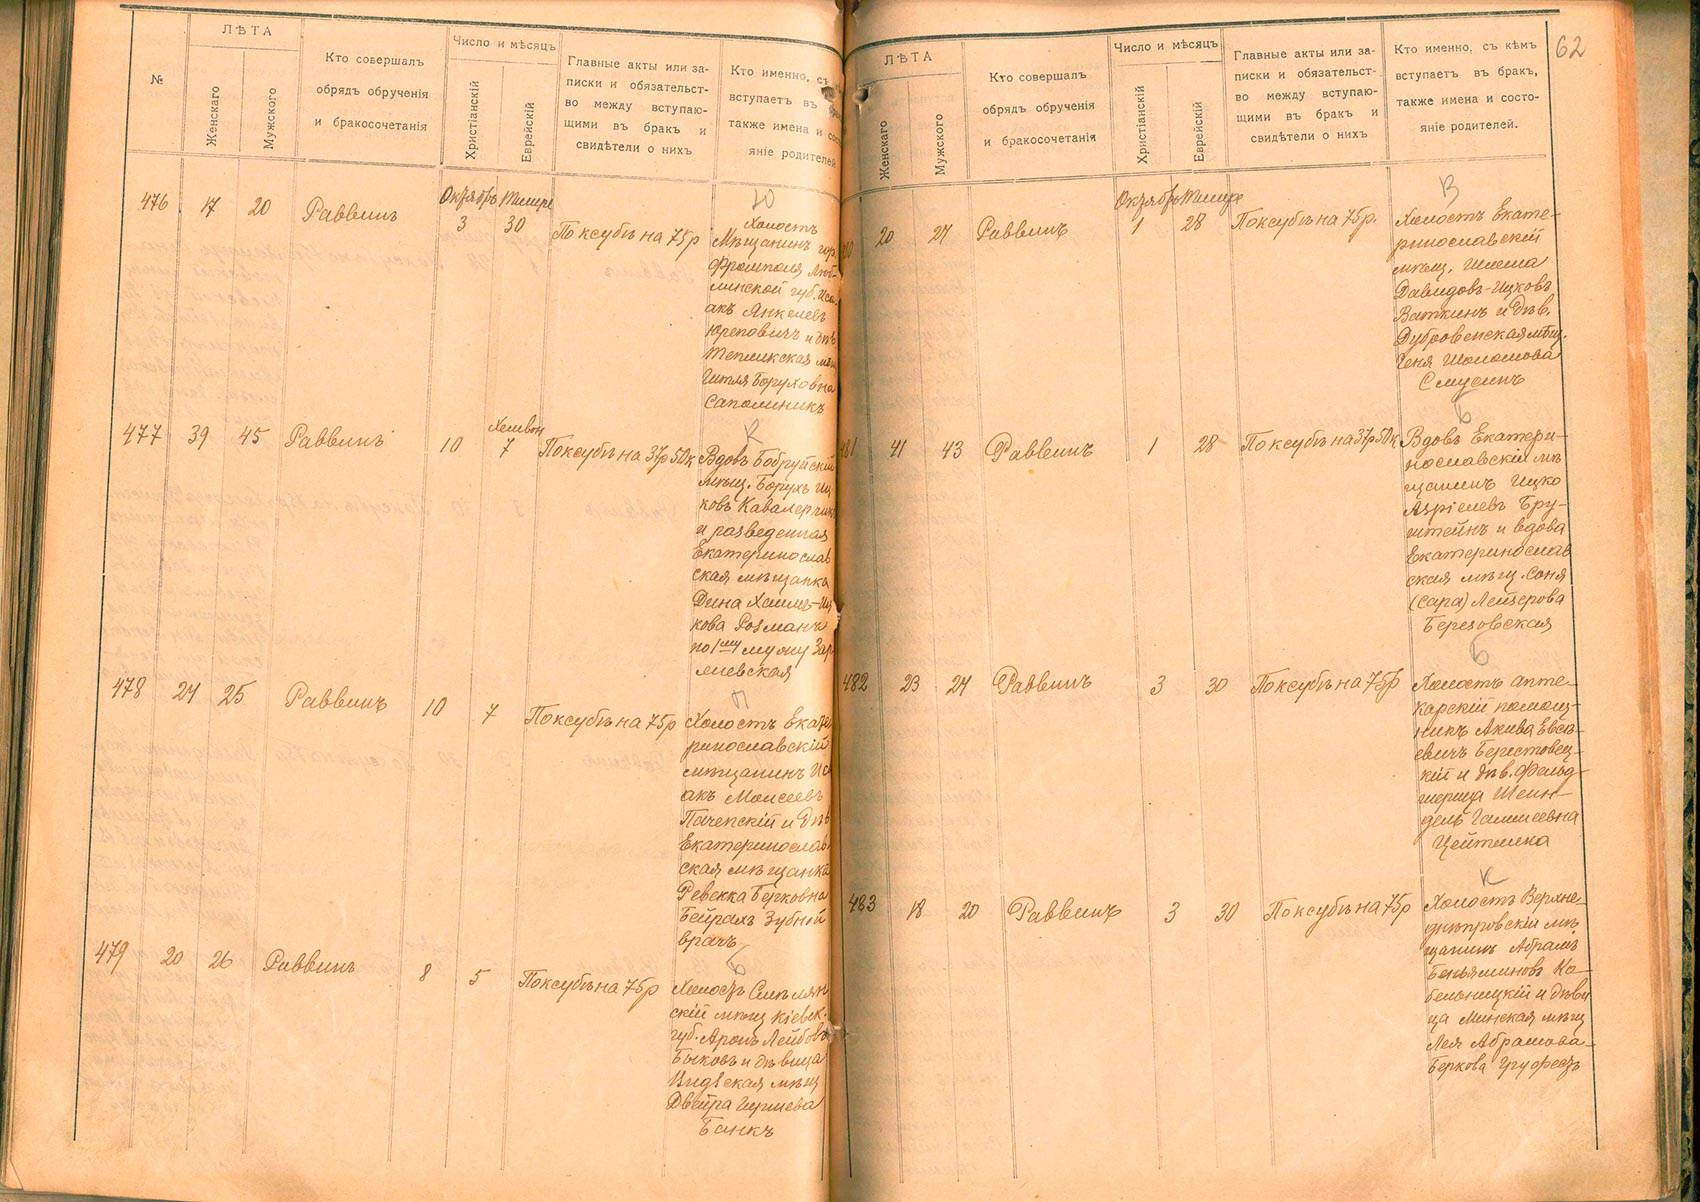 №
ЛѢТА
Женскаго
Мужского
Кто совершалъ
обрядъ обрученія
и бракосочетанія
Число и мѣсяцъ
Христіанскій
Еврейскій
Главные акты или за-
писки и обязательст-
во между вступаю-
щими въ бракъ и
свидѣтели о нихъ
Кто именно, съ
вступаетъ въ
также имена и сосо
яніе родителей
476 17 20 Раввинъ
Октябрь Тишре
3 30
По ксубѣ на 75р
Ю
Холостъ
Мѣщанинъ гор.
Фрамполя Люб-
линской губ. Иса-
акъ Янкелевъ
Юреповичъ и дѣв
Тепликская мѣщ
Гитля Боруховна
Сапожникъ
477 39 45 Раввинъ
10
Хешвон
7
По ксубѣ на 37р 50к
К
Вдовъ Бобруйскій
мѣщ. Борухъ Иц
ковъ Кавалерчик
и разведенная
Екатеринослав
ская мѣщанка
Дина Хаимъ-Иц
кова Розманъ
по 1му мужу Зар
жевская
478 24 25 Раввинъ
10 7
По ксубѣ на 75р
П
Холостъ Екате
ринославскій
мѣщанинъ Иса
акъ Моисеевъ
Почепскій и дѣв
Екатеринослав
ская мѣщанка
Ревекка Берковна
Бейрахъ Зубной
врачъ
479 20 26 Раввинъ
8 5
По ксубѣ на 75р
Б
Холостъ Смѣлян
скій мѣщ Кіевск.
губ. Аронъ Лейбовъ
Быковъ и дѣвица
ская мѣщ
Двейра Гершева
Банкъ
62
ЛѢТА
Женскаго
Мужского
Кто совершалъ
обрядъ обрученія
и бракосочетанія
Число и мѣсяцъ
Христіанскій
Еврейскій
Главные акты или за-
писки и обязательст-
во между вступаю-
щими въ бракъ и
свидѣтели о нихъ
Кто именно, съ кѣмъ
вступаетъ въ бракъ,
также имена и состо-
яніе родителей.
80 20 27 Раввинъ
Октябрь Тишре
1 28
По ксубѣ на 75р.
В
Холостъ Екате-
ринославскій
мѣщ. Шлема
Давидовъ-Ицковъ
Ваткинъ и дѣв.
Дубровенская мѣщ.
Геня Шоломова
Смусинъ
481 41 43 Раввинъ
1 28
По ксубѣ на 37р 50к
Б
Вдовъ Екатери-
нославскій мѣ
щанинъ Ицко
Азріелевъ Бру-
штейнъ и вдова
Екатеринослав
ская мѣщ. Соня
(Сара) Лейзерова
Березовская
482 23 24 Раввинъ
3 30
По ксубѣ на 75р
Б
Холостъ апте-
карскій помощ-
никъ Акива Евсѣ-
евичъ Берестовец-
кій и дѣв. Фельд-
шерица Шеин-
дель
Цейтлина
483 18 20 Раввинъ
3 30
По ксубѣ на 75р
К
Холостъ Верхне-
днѣпровскій мѣ-
щанинъ Абрамъ
Беньяминовъ Ко-
бельницкій и дѣви
ца Минская мѣщ
Лея Абрамова-
Беркова